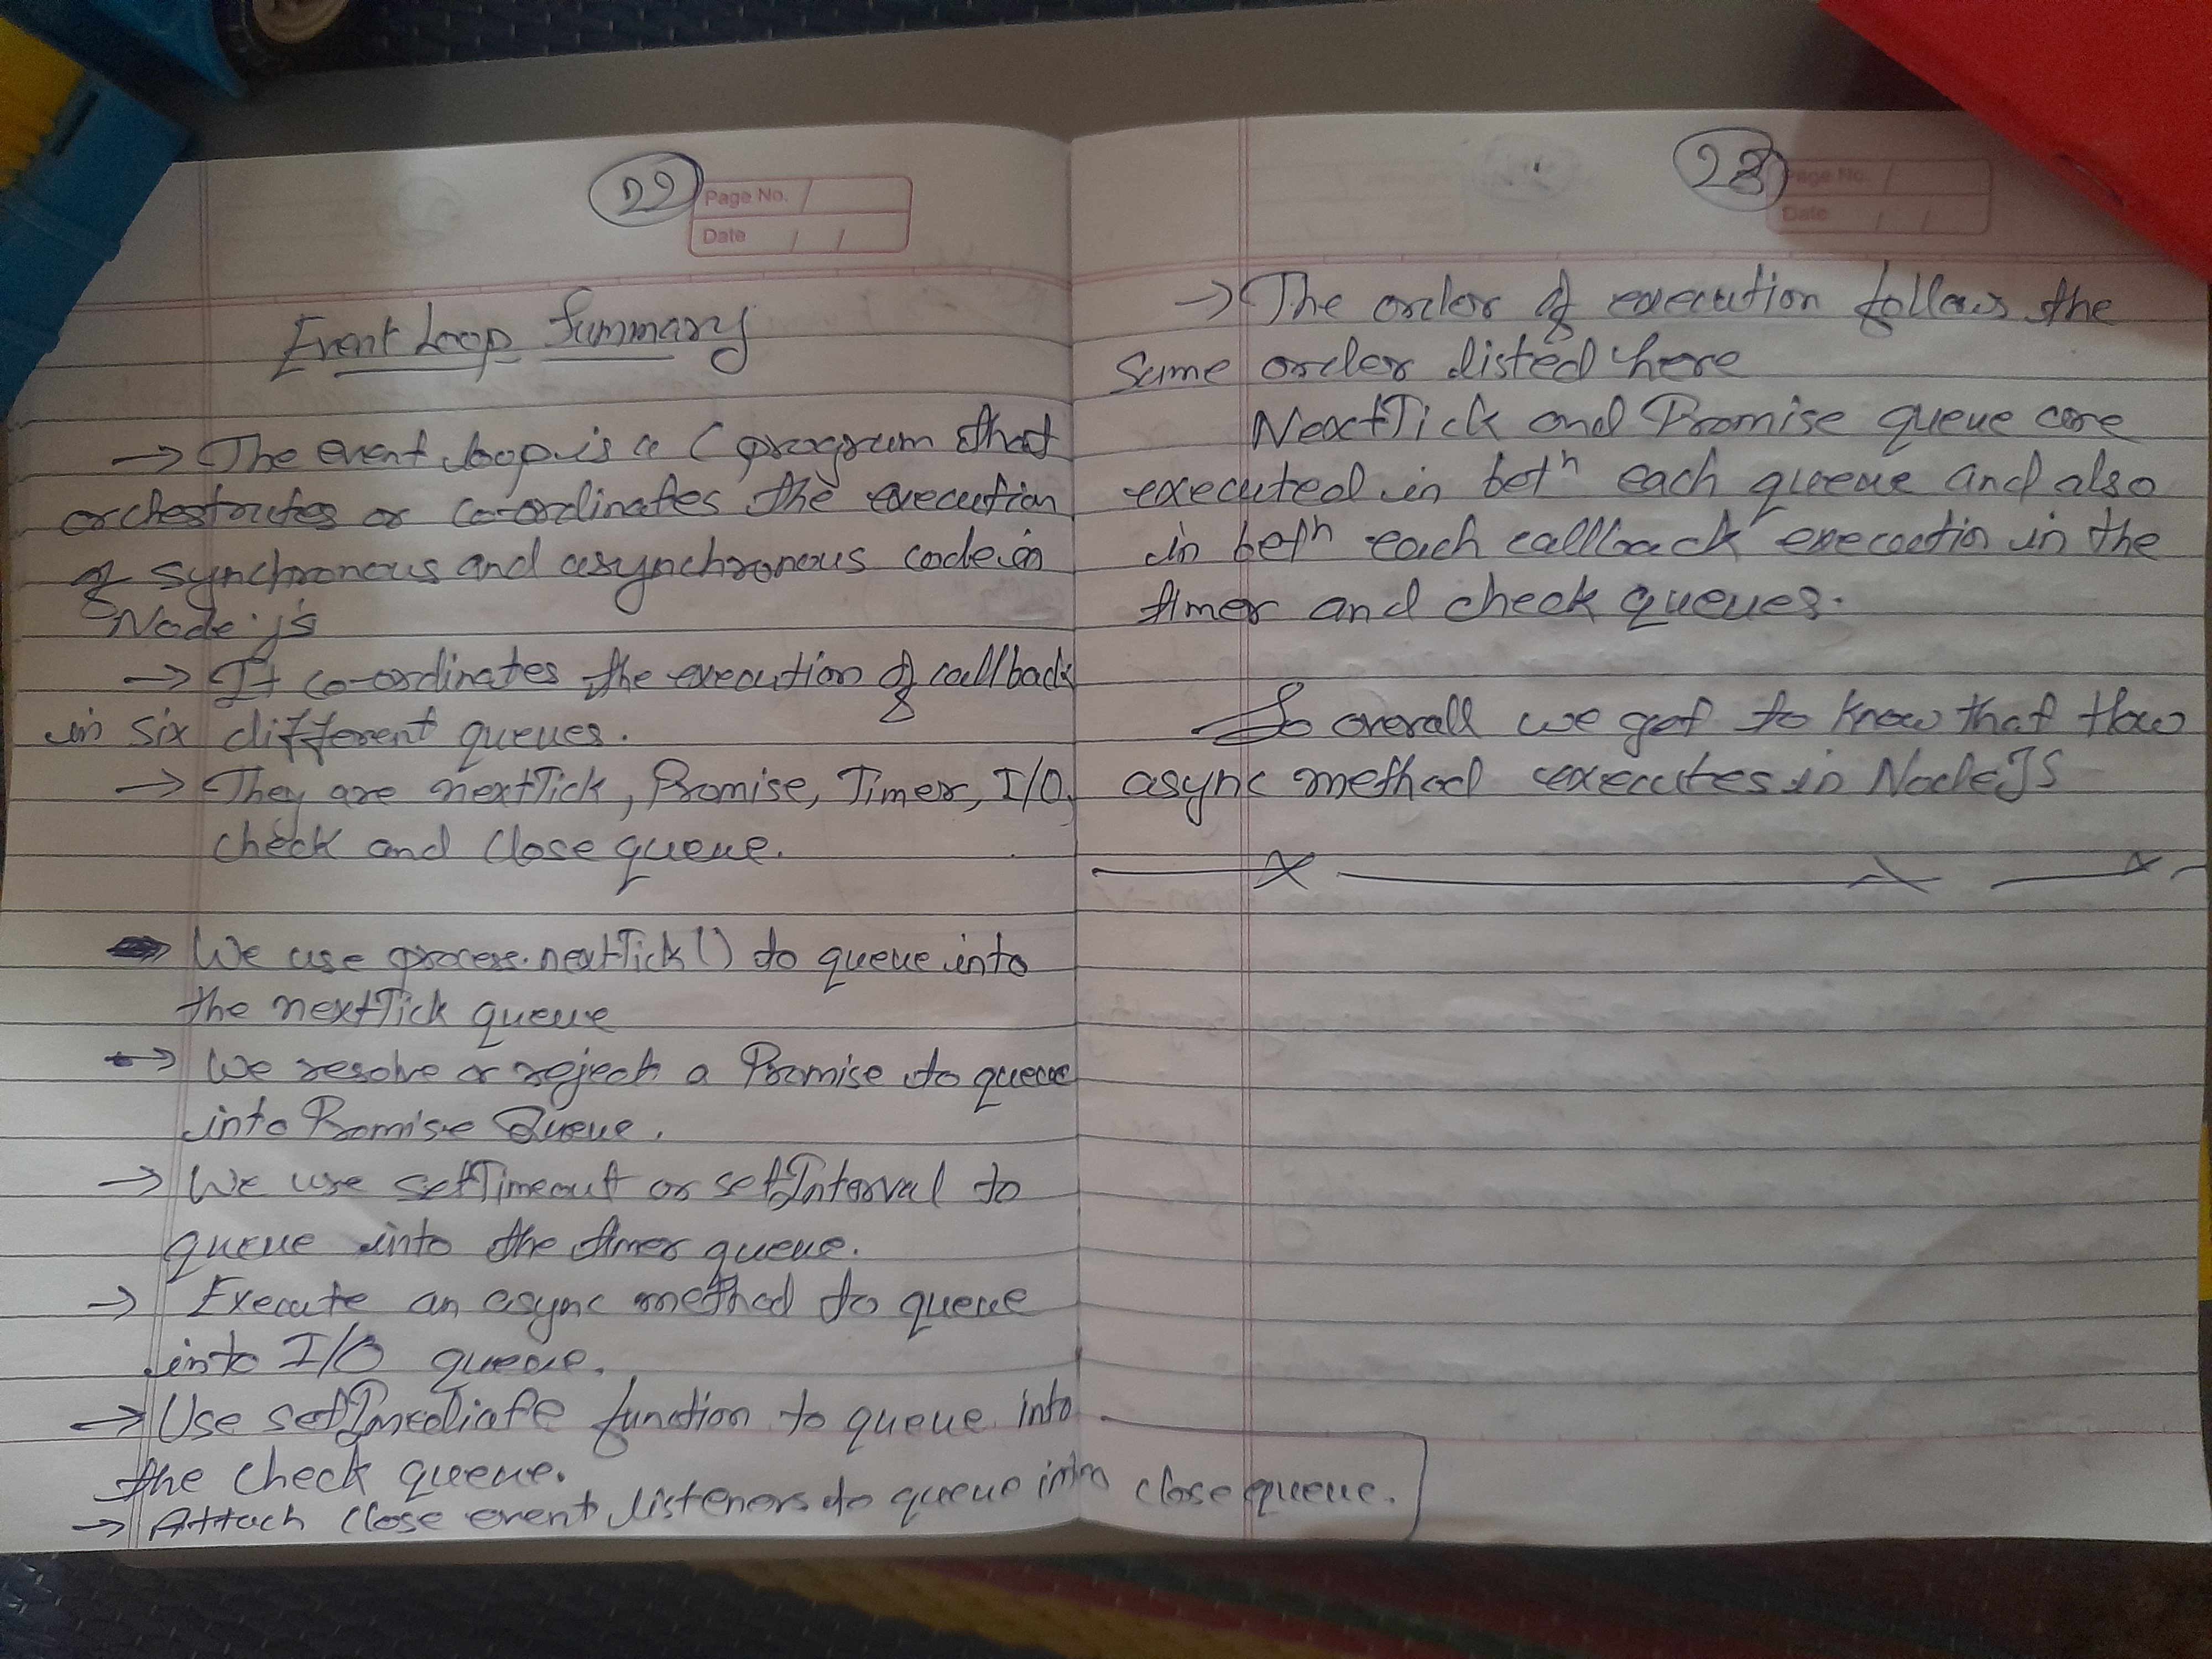 22
Page No.
Date / /
Event Loop Summary
→ The event loop is a C program that
orchestrates or co-ordinates the execution
of synchronous and asynchronous code in
Node.js
→ It co-ordinates the execution of callbacks
in six different queues.
→ They are nextTick, Promise, Timer, I/O,
check and Close queue.
We use process.nextTick() to queue into
the nextTick queue
→ We resolve or reject a Promise to queue
into Promise Queue.
→ We use setTimeout or setInterval to
queue into the timer queue.
→ Execute an async method to queue
into I/O queue.
→ Use setImediate function to queue into
the check queue.
→ Attach close event listeners to queue into close queue.
23
Page No.
Date / /
→ The order of execution follows the
Same order listed here
NextTick and Promise queue are
executed in betn each queue and also
in betn each callback execution in the
timer and check queues.
So overall we got to know that how
async method executes in NodeJS